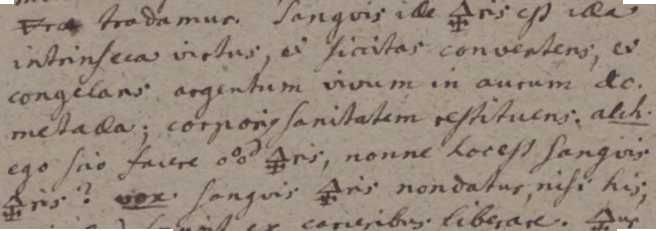 tradamus. Sanguis ille 🜍ris est illa
intrinseca virtus, et siccitas convertens, et
congelans argentum vivum in aurum &c.
metalla; corporis sanitatem restituens. alch.
ego scio facere 🜍ris, nonne hoc est sanguis
🜍ris? vox. sanguis 🜍ris non datur, nisi his,
ex carceribus liberare.